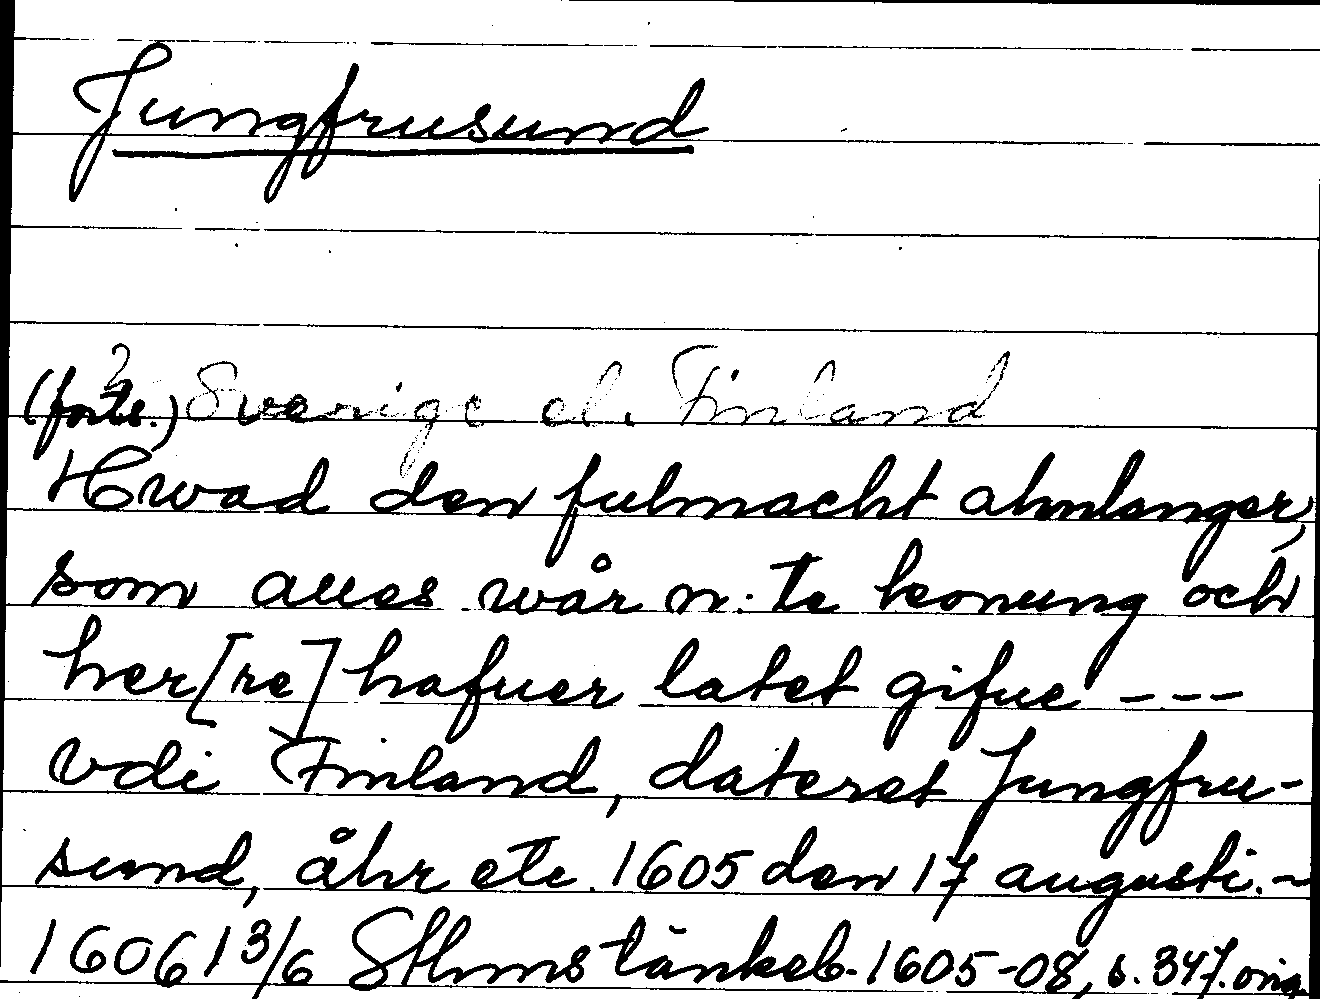 Jungfrusund
?
(forts.) Sverige el. Finland
Hwad den fulmacht ahnlanger,
som alles wår n: te konung och
her[re] hafuer latet gifue ---
vdi Finland, dateret Jungfru-
sund, åhr etc. 1605 den 17 augusti. -
1606 13/6 Sthms tänkeb. 1605-08, s. 347. orig.